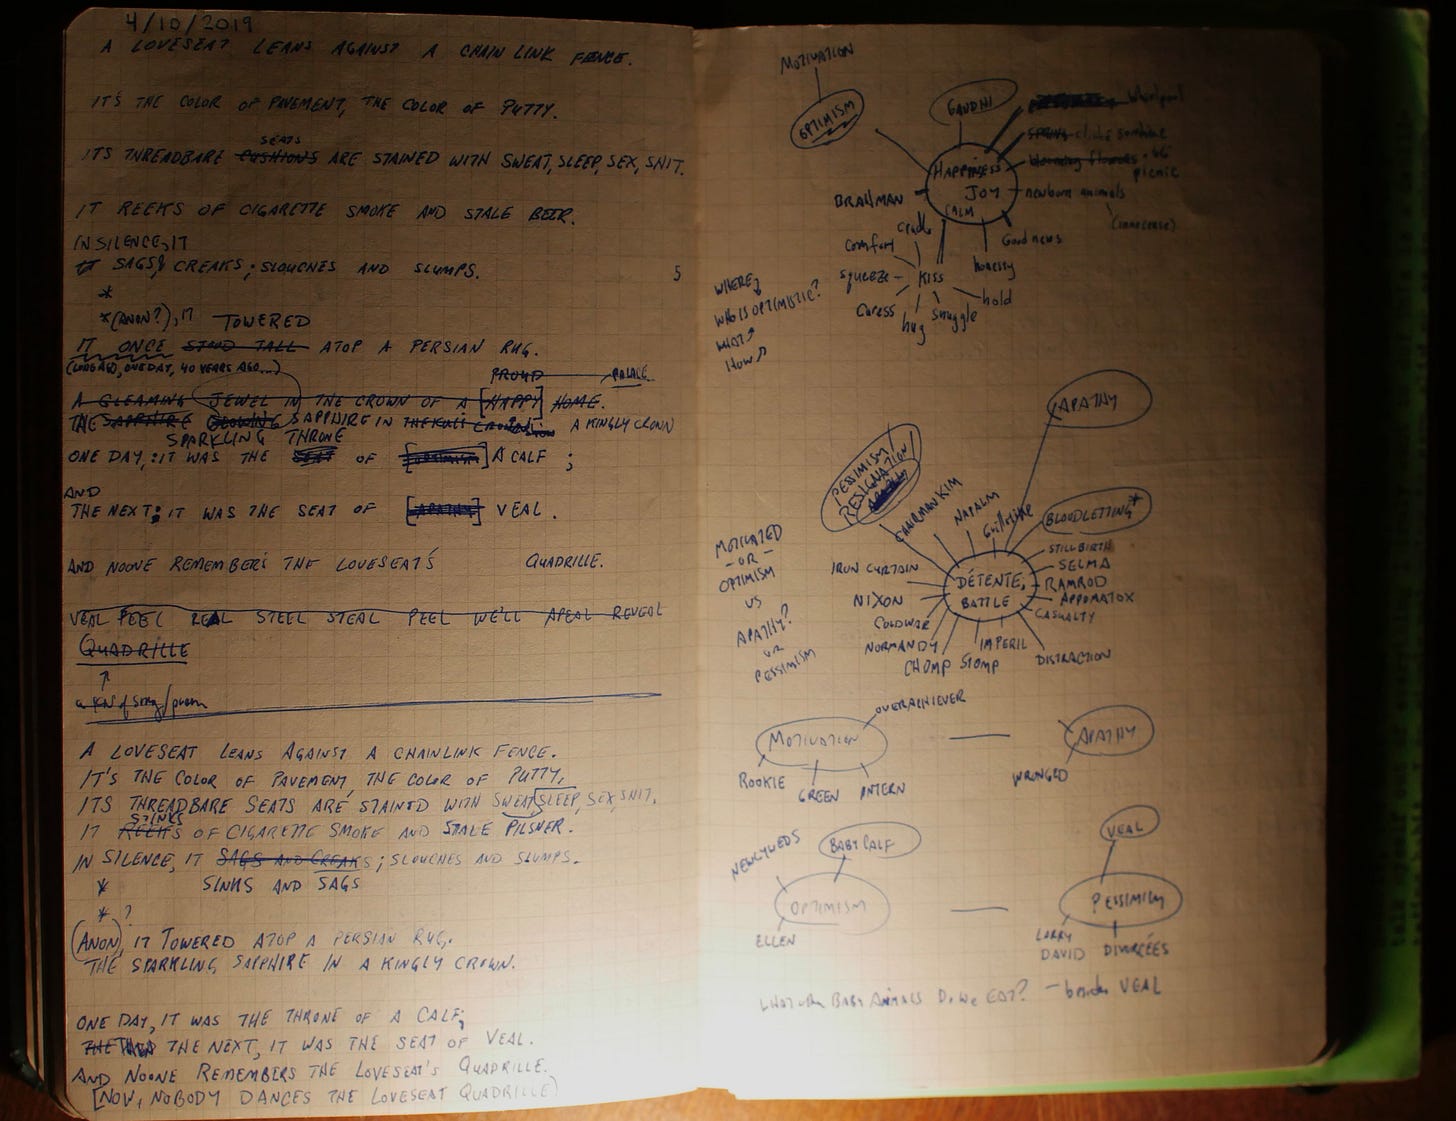 4/10/2019
A LOVESEAT LEANS AGAINST A CHAIN LINK FENCE.
IT'S THE COLOR OF PAVEMENT, THE COLOR OF PUTTY.
SEATS
ITS THREADBARE CUSHIONS ARE STAINED WITH SWEAT, SLEEP, SEX, SNIT.
IT REEKS OF CIGARETTE SMOKE AND STALE BEER.
IN SILENCE, IT
IT SAGS & CREAKS; SLOUCHES AND SLUMPS. 5
*
*(ANON?), IT TOWERED
IT ONCE STOOD TALL ATOP A PERSIAN RUG.
(LONG AGO, ONE DAY, 40 YEARS AGO...)
PROUD PALACE
A GLEAMING JEWEL IN THE CROWN OF A [HAPPY] HOME.
THE SAPPHIRE GLOWING SAPPHIRE IN A KINGLY CROWN
SPARKLING THRONE
ONE DAY, : IT WAS THE SEAT OF [OPTIMISM] A CALF ;
AND
THE NEXT: IT WAS THE SEAT OF [APATHY] VEAL.
AND NOONE REMEMBERS THE LOVESEAT'S QUADRILLE.
VEAL PEEL REAL STEEL STEAL PEEL WE'LL APEAL REVEAL
QUADRILLE
↑
A LOVESEAT LEANS AGAINST A CHAINLINK FENCE.
IT'S THE COLOR OF PAVEMENT, THE COLOR OF PUTTY.
ITS THREADBARE SEATS ARE STAINED WITH SWEAT, SLEEP, SEX, SNIT.
STINKS
IT REEKS OF CIGARETTE SMOKE AND STALE PILSNER.
IN SILENCE, IT SAGS AND CREAKS; SLOUCHES AND SLUMPS.
SINKS AND SAGS
*
* ?
(ANON), IT TOWERED ATOP A PERSIAN RUG.
THE SPARKLING SAPPHIRE IN A KINGLY CROWN.
ONE DAY, IT WAS THE THRONE OF A CALF;
THE NEXT, IT WAS THE SEAT OF VEAL.
AND NOONE REMEMBERS THE LOVESEAT'S QUADRILLE.
[NOW, NOBODY DANCES THE LOVESEAT QUADRILLE]
MOTIVATION
OPTIMISM
GANDHI
Whirlpool
SPRING cliché sunshine
Blooming flowers
picnic
HAPPINESS
JOY
CALM
newborn animals
(innocense)
BRAHMAN
Good news
honesty
cradle
comfort
squeeze
KISS
hold
Caress
hug
Snuggle
WHERE?
WHO IS OPTIMISTIC?
WHAT?
HOW?
APATHY
PESSIMISM
RESIGNATION
APATHY
CHAIRMAN KIM
NAPALM
Guillotine
BLOODLETTING*
STILLBIRTH
SELMA
RAMROD
APPOMATOX
CASUALTY
DISTRACTION
IMPERIL
STOMP
CHOMP
NORMANDY
COLD WAR
NIXON
IRON CURTAIN
DÉTENTE,
BATTLE
MOTIVATED
-OR-
OPTIMISM
VS
APATHY?
OR
PESSIMISM
OVERACHIEVER
MOTIVATION — APATHY
ROOKIE
GREEN
INTERN
WRONGED
NEWLYWEDS
BABY CALF
VEAL
OPTIMISM — PESSIMISM
ELLEN
LARRY
DAVID
DIVORCÉES
BABY ANIMALS DO WE EAT? — besides VEAL